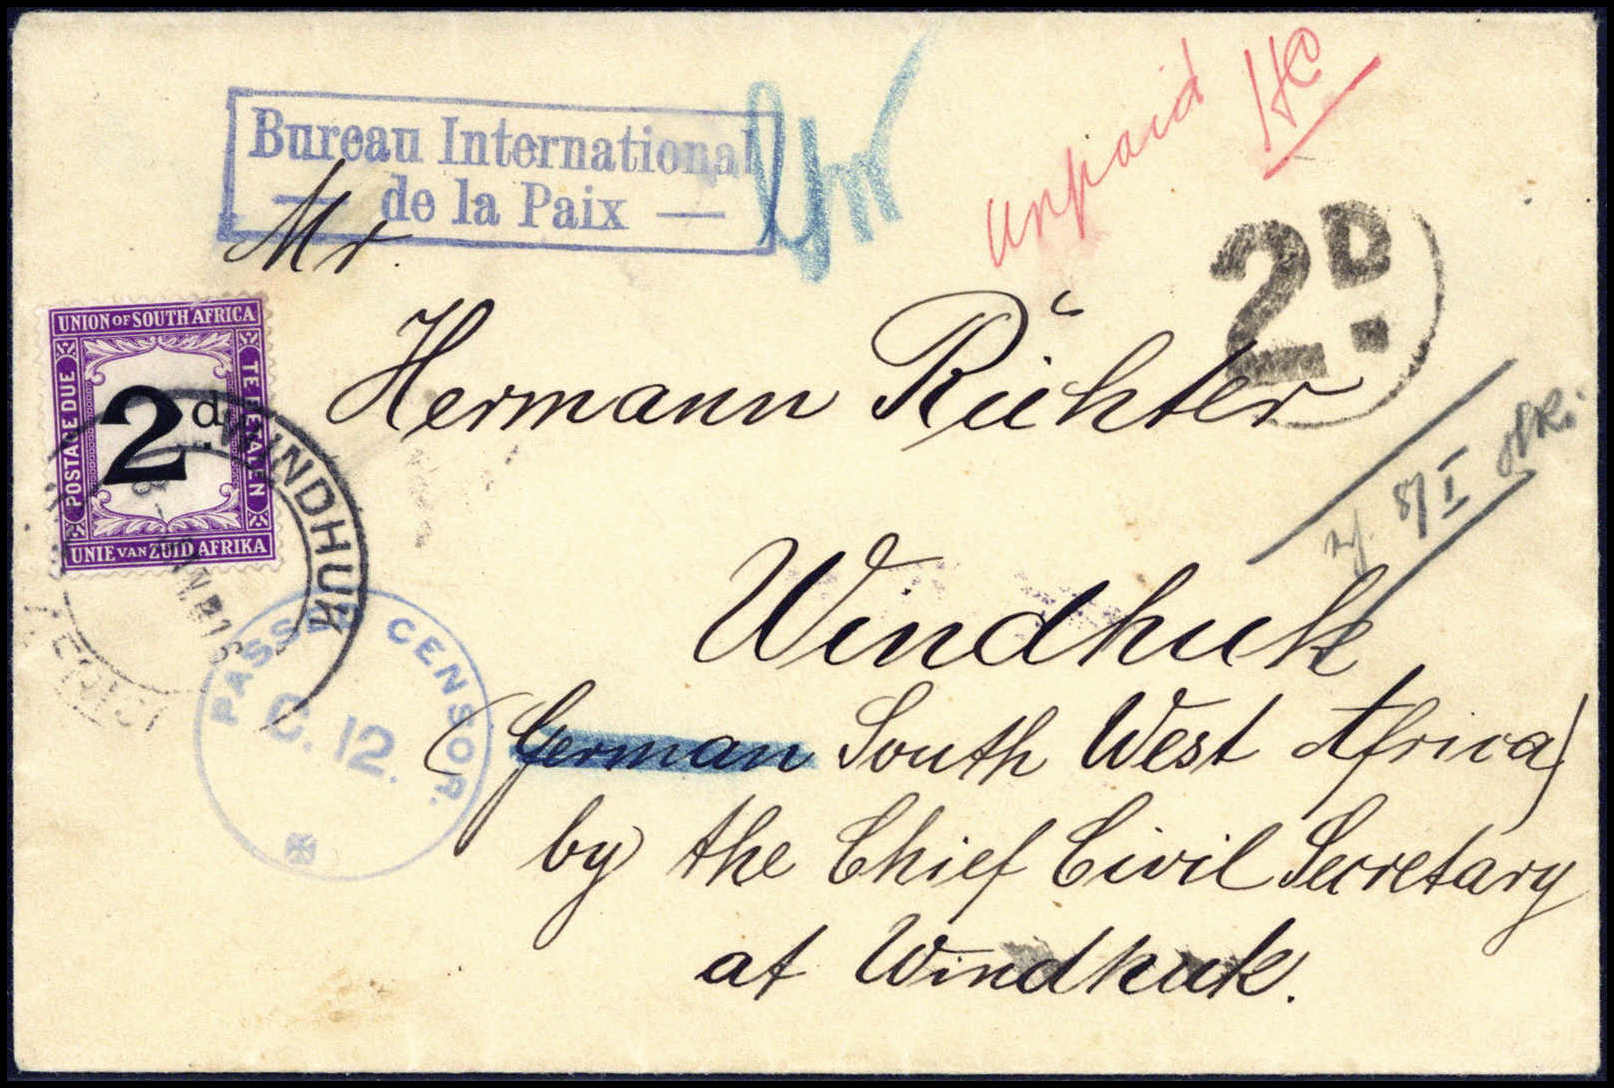 Bureau International
— de la Paix —
unpaid
2D.
Mr.
Hermann Richter
Windhuk
(German South West Africa)
by the Chief Civil Secretary
at Windhuk.
UNION OF SOUTH AFRICA
POSTAGE DUE
TE BETALEN
2d.
UNIE VAN ZUID AFRIKA
WINDHUK
PASSED CENSOR.
C. 12.
8/I